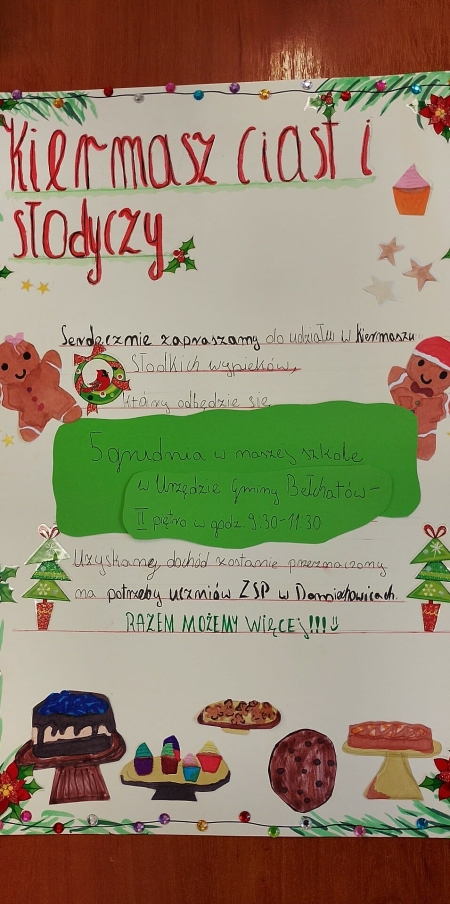 Kiermasz ciast i
słodyczy
Serdecznie zapraszamy do udziału w Kiermaszu
Słodkich wypieków,
który odbędzie się
5 grudnia w naszej szkole
w Urzędzie Gminy Bełchatów-
II piętro w godz 9:30-11:30
Uzyskany dochód zostanie przeznaczony
na potrzeby uczniów ZSP w Domiechowicach.
RAZEM MOŻEMY WIĘCEJ!!!